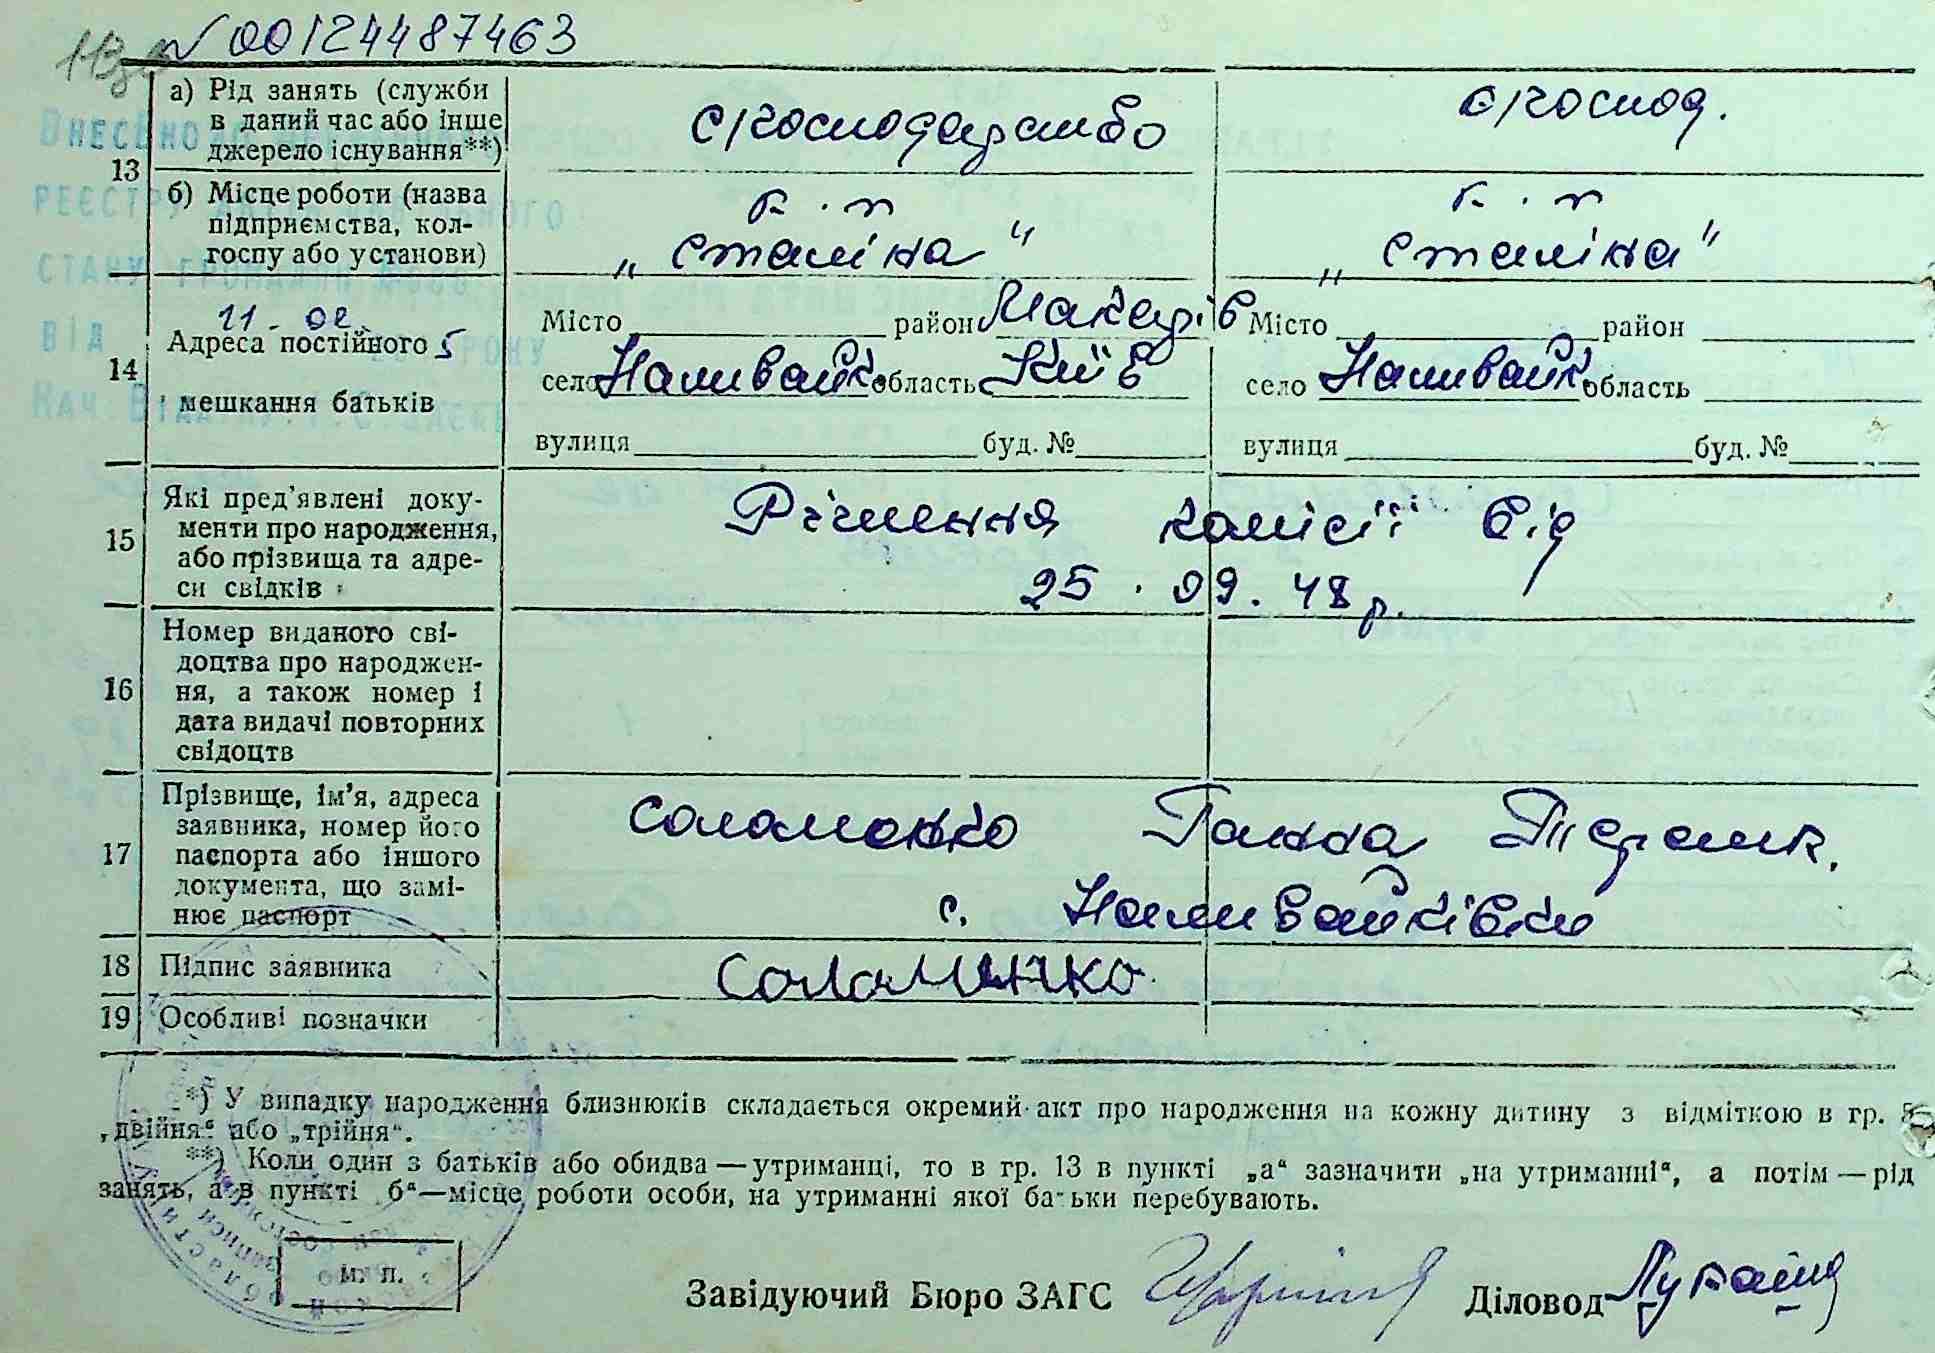 N 00124487463
13
а) Рід занять (служби
в даний час або інше
джерело існування**)
с/господарство
с/господ.
б) Місце роботи (назва
підприємства, кол-
госпу або установи)
к-п
„Сталіна"
к-п
„Сталіна"
ВНЕСЕНО ДО
РЕЄСТРУ АКТІВ ЦИВІЛЬНОГО
СТАНУ ГРОМАДЯН
ВІД 11-02 5 РОКУ
14
Адреса постійного
мешкання батьків
Місто район Макарів
село Наливайк. область Київ
вулиця буд. №
Місто район
село Наливайк. область
вулиця буд. №
15
Які пред’явлені доку-
менти про народження,
або прізвища та адре-
си свідків
Рішення комісії від
25.09.48 р.
16
Номер виданого сві-
доцтва про народжен-
ня, а також номер і
дата видачі повторних
свідоцтв
17
Прізвище, ім’я, адреса
заявника, номер його
паспорта або іншого
документа, що замі-
нює паспорт
Соломенко Ганна Терешк.
с. Наливайківки
18 Підпис заявника
Соломинко
19 Особливі позначки
*) У випадку народження близнюків складається окремий акт про народження на кожну дитину з відміткою в гр. 5
„двійня“ або „трійня“.
**) Коли один з батьків або обидва—утриманці, то в гр. 13 в пункті „а“ зазначити „на утриманні“, а потім—рід
занять, а в пункті б“—місце роботи особи, на утриманні якої батьки перебувають.
М. П.
Завідуючий Бюро ЗАГС
Діловод